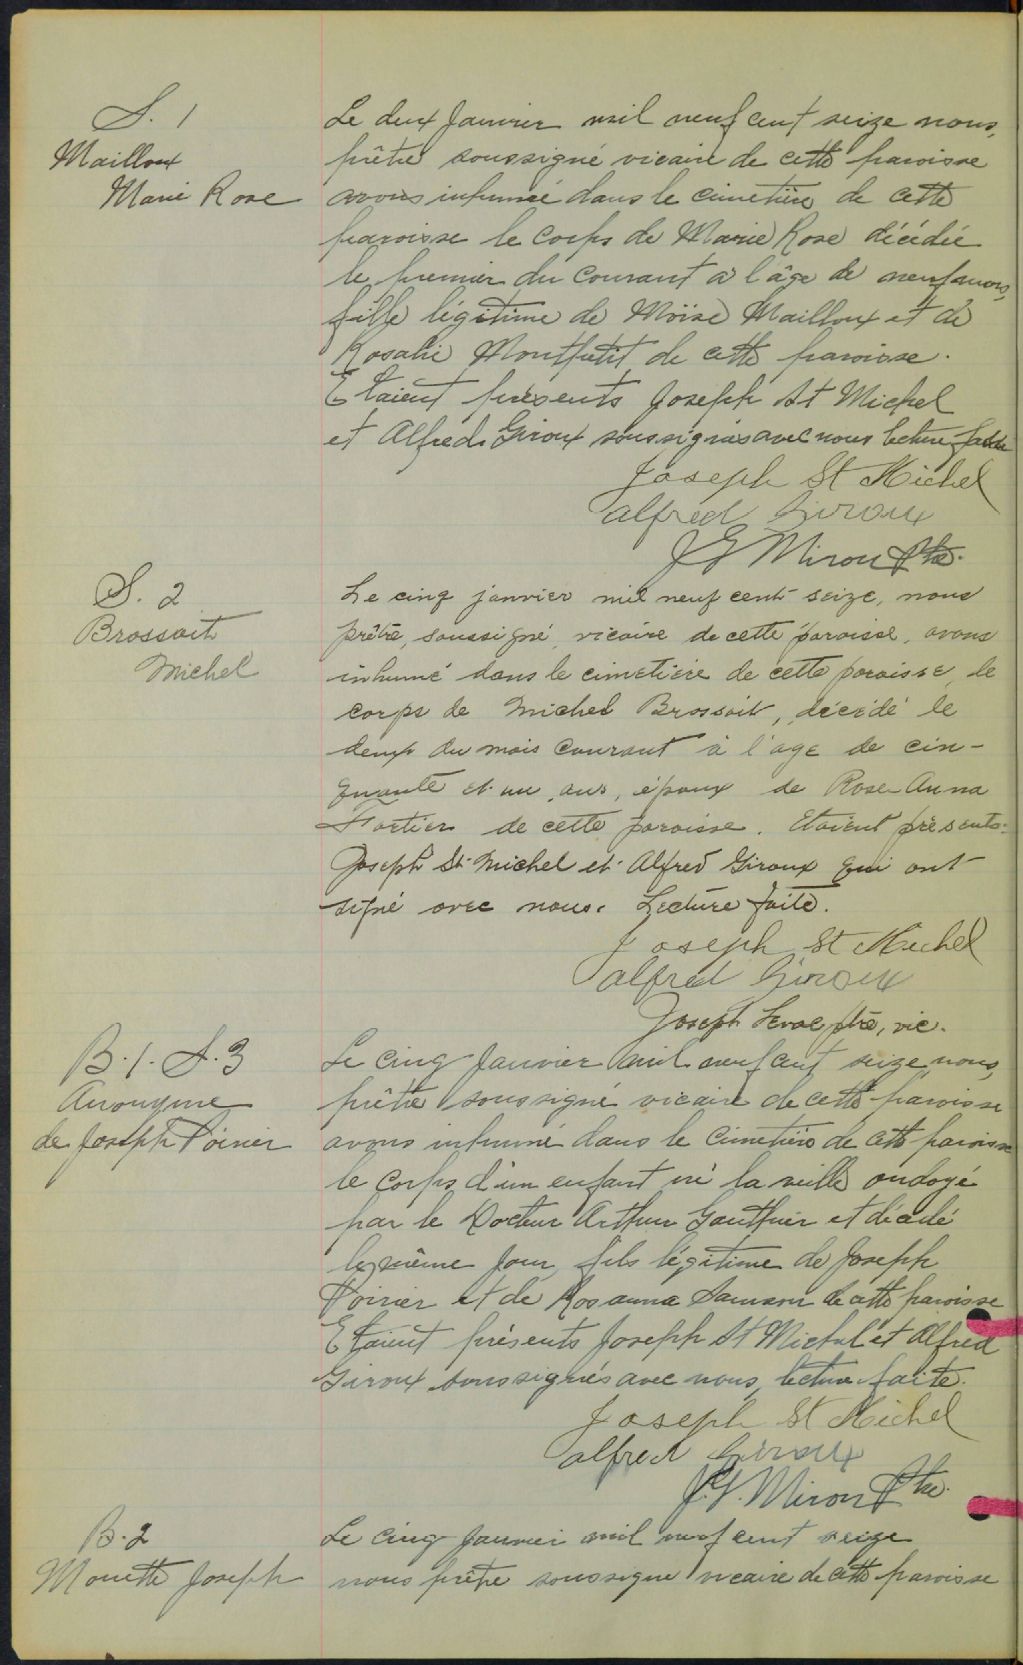 S. 1
Mailloux
Marie Rose
Le deux Janvier mil neuf cent seize nous,
prêtre soussigné vicaire de cette paroisse
avons inhumé dans le cimetière de cette
paroisse le corps de Marie Rose décédée
le premier du courant à l'âge de neuf mois,
fille légitime de Moïse Mailloux et de
Rosalie Montpetit de cette paroisse.
Etaient présents Joseph St Michel
et Alfred Giroux soussignés avec nous lecture faite
Joseph St Michel
alfred Giroux
J G Miron Ptre.
S. 2
Brossoit
Michel
Le cinq janvier mil neuf cent seize, nous
prêtre, soussigné, vicaire de cette paroisse, avons
inhumé dans le cimetière de cette paroisse, le
corps de Michel Brossoit, décédé le
deux du mois courant à l'age de cin-
quante et un ans, époux de Rose-Anna
Fortier de cette paroisse. Etaient présents:
Joseph St-Michel et Alfred Giroux qui ont
signé avec nous. Lecture faite.
Joseph St Michel
alfred Giroux
Joseph ptre, vic.
B.1. S.3
Anonyme
de Joseph Poirier
Le cinq Janvier mil neuf cent seize, nous,
prêtre soussigné vicaire de cette paroisse
avons inhumé dans le cimetière de cette paroisse
le corps d'un enfant né la veille ondoyé
par le Docteur Arthur Gauthier et décédé
le même jour, fils légitime de Joseph
Poirier et de Rosanna Samson de cette paroisse
Etaient présents Joseph St Michel et Alfred
Giroux soussignés avec nous, lecture faite.
Joseph St Michel
alfred Giroux
J.G. Miron Ptre.
B.2
Monette Joseph
Le cinq Janvier mil neuf cent seize
nous prêtre soussigné vicaire de cette paroisse